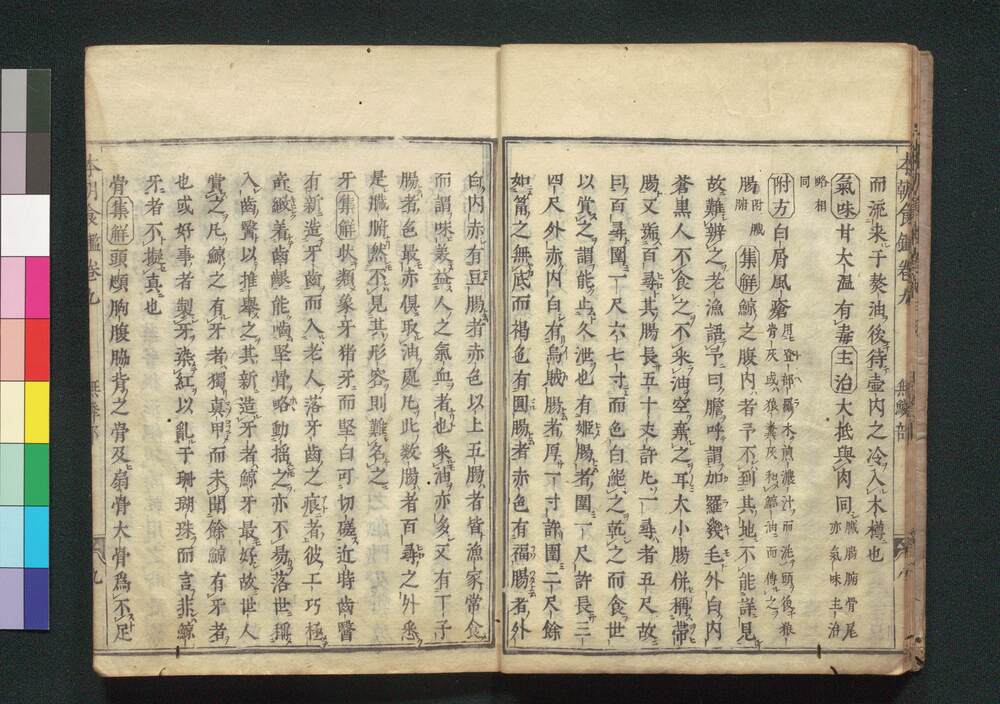 而泥来子熬油後待壷内之冷入木樽也
氣味甘大温有毒主治大抵與肉同臓腸腑骨尾亦氣味主治
略相同
附方白屑風瘡用登部羅木煎濃汁而洗頭後狼骨灰或狼糞灰和鯨油而傅之
腸附臓腑集解鯨之腹内者予不到其地不能詳見
故難辨之老漁語予曰膽呼謂加羅幾毛外白内
蒼黒人不食之不采油空棄之耳大小腸併稱帯
腸又號百尋其腸長五十丈許凡一尋者五尺故
曰百尋圍一尺六七寸而色白能之乾之而食世
以賞之謂能止久泄也有姫腸者圍一尺許長三
四尺外赤内白有烏賊腸者厚一寸許圍二尺餘
如筩之無底而褐色有圓腸者赤色有福腸者外
白内赤有豆腸者赤色以上五腸者皆漁家常食
而謂味美益人之氣血者也采油亦多又有丁子
腸者色最赤倶取油處凡此數腸者百尋之外悉
是臓腑然不見其形容則難名之
牙集解状類象牙猪牙而堅白可切磋近時齒醫
有新造牙齒而入老人落牙齒之痕者彼工巧極
緻着齒齦能嚙堅骨略動揺之亦不易落世稱
入齒醫以推擧之其新造牙者鯨牙最好故世人
賞之凡鯨之有牙者獨真甲而未聞餘鯨有牙者
也或好事者製牙染紅以亂于珊瑚珠而言非鯨
牙者不擬真也
骨集解頭顱胸腹脇背之骨及扇骨大骨爲不足
本朝食鑑巻九
無鱗部
九